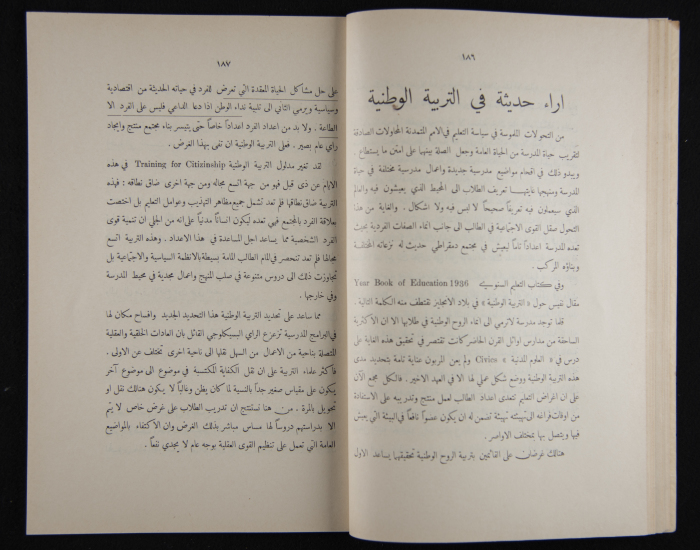 ١٨٦
اراء حديثة في التربية الوطنية
من التحولات الملموسة في سياسة التعليم في الامم المتمدنة المحاولات الصادقة
لتقريب حياة المدرسة من الحياة العامة وجعل الصلة بينهما على امتن ما يستطاع .
ويبدو ذلك في اقحام مواضيع مدرسية جديدة واعمال مدرسية مختلفة في حياة
المدرسة ومنهجها غايتهما تعريف الطلاب الى المحيط الذي يعيشون فيه والعالم
الذي سيعملون فيه تعريفاً صحيحاً لا لبس فيه ولا اشكال . والغاية من هذا
التحول صقل القوى الاجتماعية في الطالب الى جانب انماء الصفات الفردية بحيث
تعده المدرسة اعداداً تاماً ليعيش في مجتمع دمقراطي حديث له نزعاته المختلفة
وبناؤه المركب .
وفي كتاب التعليم السنوسيه Year Book of Education 1936
مقال نفيس حول « التربية الوطنية » في بلاد الانجليز نقتطف منه الكلمة التالية .
قلما توجد مدرسة لا ترمي الى انماء الروح الوطنية في طلابها الا ان الاكثرية
الساحقة من مدارس اوائل القرن الحاضر كانت تقتصر في تحقيق هذه الغاية على
درس في « العلوم المدنية » Civics ولم يعن المربون عناية تامة بتحديد مدى
هذه التربية الوطنية ووضع شكل عملي لها الا في العهد الاخير . فالكل مجمع الآن
على ان اغراض التعليم تتعدى اعداد الطالب لعمل منتج وتدريبه على الاستفادة
من اوقات فراغه الى تهيئته تهيئة تضمن له ان يكون عضواً نافعاً في البيئة التي يعيش
فيها ويتصل بها بمختلف الاواصر .
هنالك غرضان على القائمين بتربية الروح الوطنية تحقيقهما يساعد الاول
١٨٧
على حل مشاكل الحياة المعقدة التي تعرض للفرد في حياته الحديثة من اقتصادية
وسياسية ويرمي الثاني الى تلبية نداء الوطن اذا دعا الداعي فليس على الفرد الا
الطاعة . ولا بد من اعداد الفرد اعداداً خاصاً حتى يتيسر بناء مجتمع منتج وايجاد
رأي عام بصير . فعلى التربية الوطنية ان تفى بهذا الغرض .
لقد تغير مدلول التربية الوطنية Training for Citizinship في هذه
الايام عن ذي قبل فهو من جهة اتسع مجاله ومن جهة اخرى ضاق نطاقه : فهذه
التربية ضاق نطاقها فلم تعد تشمل جميع مظاهر التهذيب وعوامل التعليم بل اختصت
بعلاقة الفرد بالمجتمع فهي تعده ليكون انساناً مدنياً على انه من الجلي ان تنمية قوى
الفرد الشخصية مما يساعد اجل المساعدة في هذا الاعداد . وهذه التربية اتسع
مجالها فلم تعد تنحصر في المام الطالب المامة بسيطة بالانظمة السياسية والاجتماعية بل
تجاوزت ذلك الى دروس متنوعة في صلب المنهج واعمال مجدية في محيط المدرسة
وفي خارجها .
مما ساعد على تحديد التربية الوطنية هذا التحديد الجديد وافساح مكان لها
في البرامج المدرسية تزعزع الرأي البسيكلوجي القائل بان العادات الخلقية والعقلية
المتصلة بناحية من الاعمال من السهل نقلها الى ناحية اخرى تختلف عن الاولى .
فأكثر علماء التربية على ان نقل الكفاية المكتسبة في موضوع الى موضوع آخر
يكون على مقياس صغير جداً بالنسبة لما كان يظن وغالباً لا يكون هنالك نقل او
تحويل بالمرة . من هنا نستنتج ان تدريب الطلاب على غرض خاص لا يتم
الا بدراستهم دروساً لها مساس مباشر بذلك الغرض وان الاكتفاء بالمواضيع
العامة التي تعمل على تنظيم القوى العقلية بوجه عام لا يجدي نفعاً .